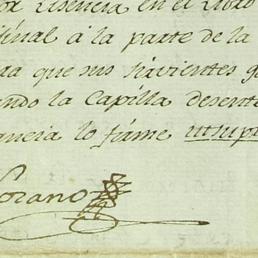 Licencia en el Libro
final á la parte de la
que sus sirvientes g
ando la Capilla desente
ancia lo firme utsup
orano